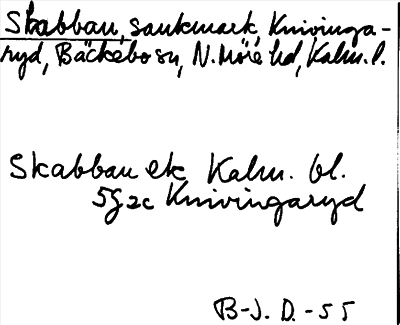 Skabbau, sankmark, Knivinga-
ryd, Bäckebo sn, N. Möre hd, Kalm. l.
Skabbau ek Kalm. bl.
5g 2c Knivingaryd
B-J. D. - 55